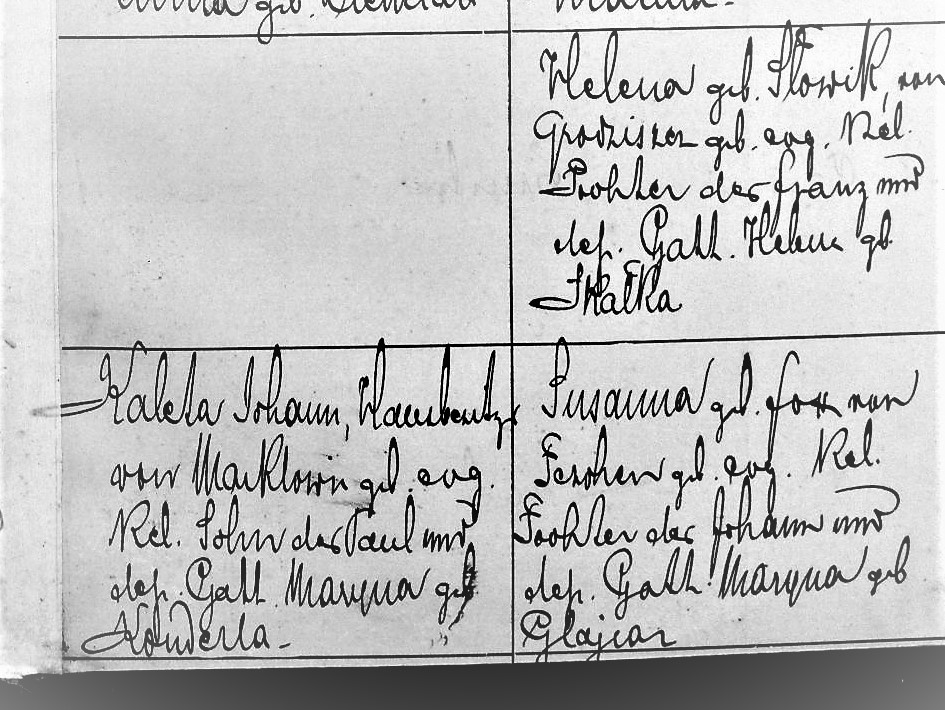 geb.
Helena geb. Słowik, von
Grodziszcz geb. evg. Rel.
Tochter des Franz und
dess. Gatt. Helene gb.
Skałka
Kaleta Johann, Hausbesitzer
von Marklowin geb. evg.
Rel. Sohn des Paul und
dess. Gatt. Maryna geb
Konderla -
Susanna geb. Fox von
Teschen geb. evg. Rel.
Tochter des Johann und
dess. Gatt. Maryna geb
Glajcar